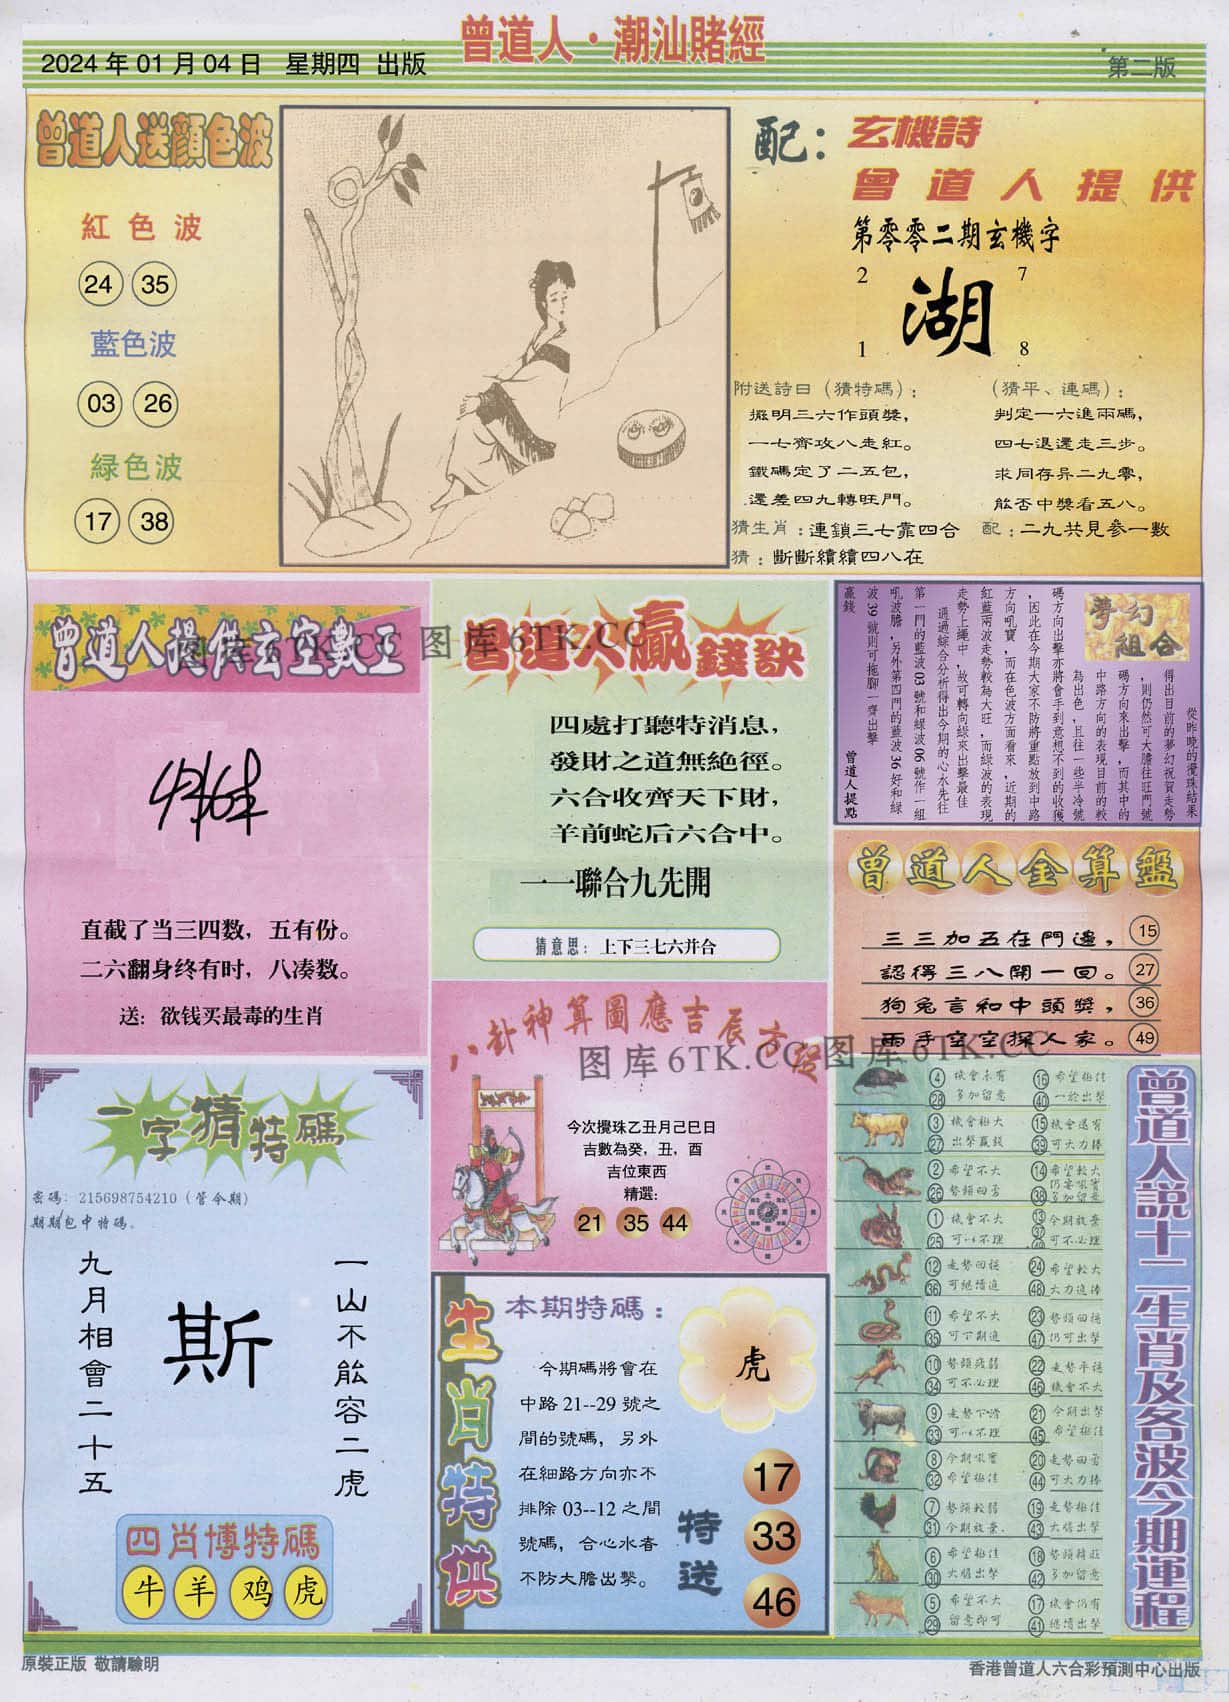 曾道人·潮汕賭經
2024年01月04日 星期四 出版
第二版
曾道人送顔色波
紅色波
24 35
藍色波
03 26
緑色波
17 38
配：
玄機詩
曾道人提供
第零零二期玄機字
2 7
湖
1 8
附送詩曰（猜特碼）：
擺明三六作頭獎，
一七齊攻八走紅。
鐵碼定了二五包，
還差四九轉旺門。
（猜平、連碼）：
判定一六進兩碼，
四七退還走三步。
求同存异二九零，
能否中獎看五八。
猜生肖：連鎖三七靠四合
配：二九共見參一數
猜：斷斷續續四八在
曾道人提供玄空數王
直截了当三四数，五有份。
二六翻身终有时，八凑数。
送：欲钱买最毒的生肖
图库6TK.CC 图库6TK.CC
曾道人贏錢訣
四處打聽特消息，
發財之道無絶徑。
六合收齊天下財，
羊前蛇后六合中。
一一聯合九先開
猜意思：上下三七六并合
夢幻組合
從昨晚的攪珠結果
得出目前的夢幻祝賀走勢
，則仍然可大膽往旺門號
碼方向來出擊，而其中的
中路方向的表現目前的較
為出色，且往一些半冷號
碼方向出擊亦將會手到意想不到的收獲
，因此在今期大家不防將重點放到中路
方向吼寶，而在色波方面看來，近期的
紅藍兩波走勢較為大旺，而緑波的表現
走勢上繩中，故可轉向緑來出擊最佳
通過綜合分析得出今期的心水先往
第一門的藍波03號和緑波06號作一組
吼波膽，另外第四門的藍波36好和緑
波39號則可拖腳一齊出擊
贏錢
曾道人提點
曾道人金算盤
三三加五在門邊， 15
認得三八開一回。 27
狗兔言和中頭獎， 36
兩手空空探人家。 49
八卦神算圖應吉辰方位
图库6TK.CC 图库6TK.CC
今次攪珠乙丑月己巳日
吉數為癸，丑，酉
吉位東西
精選:
21 35 44
一字猜特碼
密碼：215698754210（管今期）
期期包中特碼。
一山不能容二虎
斯
九月相會二十五
四肖博特碼
牛 羊 鸡 虎
生肖特供
本期特碼：
虎
今期碼將會在
中路21--29號之
間的號碼，另外
在細路方向亦不
排除03--12之間
號碼，合心水者
不防大膽出擊。
特送
17
33
46
曾道人説十二生肖及各波今期運程
4 機會未有 16 希望極佳
28 多加留意 40 一於出擊
3 機會極大 15 機會還有
27 出擊贏錢 39 可大力捧
2 希望不大 14 希望較大
26 勢頭回勇 38 多加留意
1 機會不大 13 今期放棄
25 可以不理 37 可不必理
12 走勢回穩 24 希望較大
36 可繼續追 48 大力追捧
11 希望不大 23 勢頭回穩
35 可下期追 47 仍可出擊
10 勢頭疲弱 22 走勢平穩
34 可不必理 46 機會不大
9 走勢下滑 21 今期出擊
33 可以不理 45 希望極佳
8 今期吼實 20 走勢回勇
32 希望極佳 44 可大力捧
7 勢頭較弱 19 走勢極佳
31 今期放棄. 43 大膽出擊
6 希望極佳 18 勢頭轉旺
30 大膽出擊 42 多加留意
5 希望不大 17 機會仍有
29 留意即可 41 繼續出擊
原裝正版 敬請驗明
香港曾道人六合彩預測中心出版